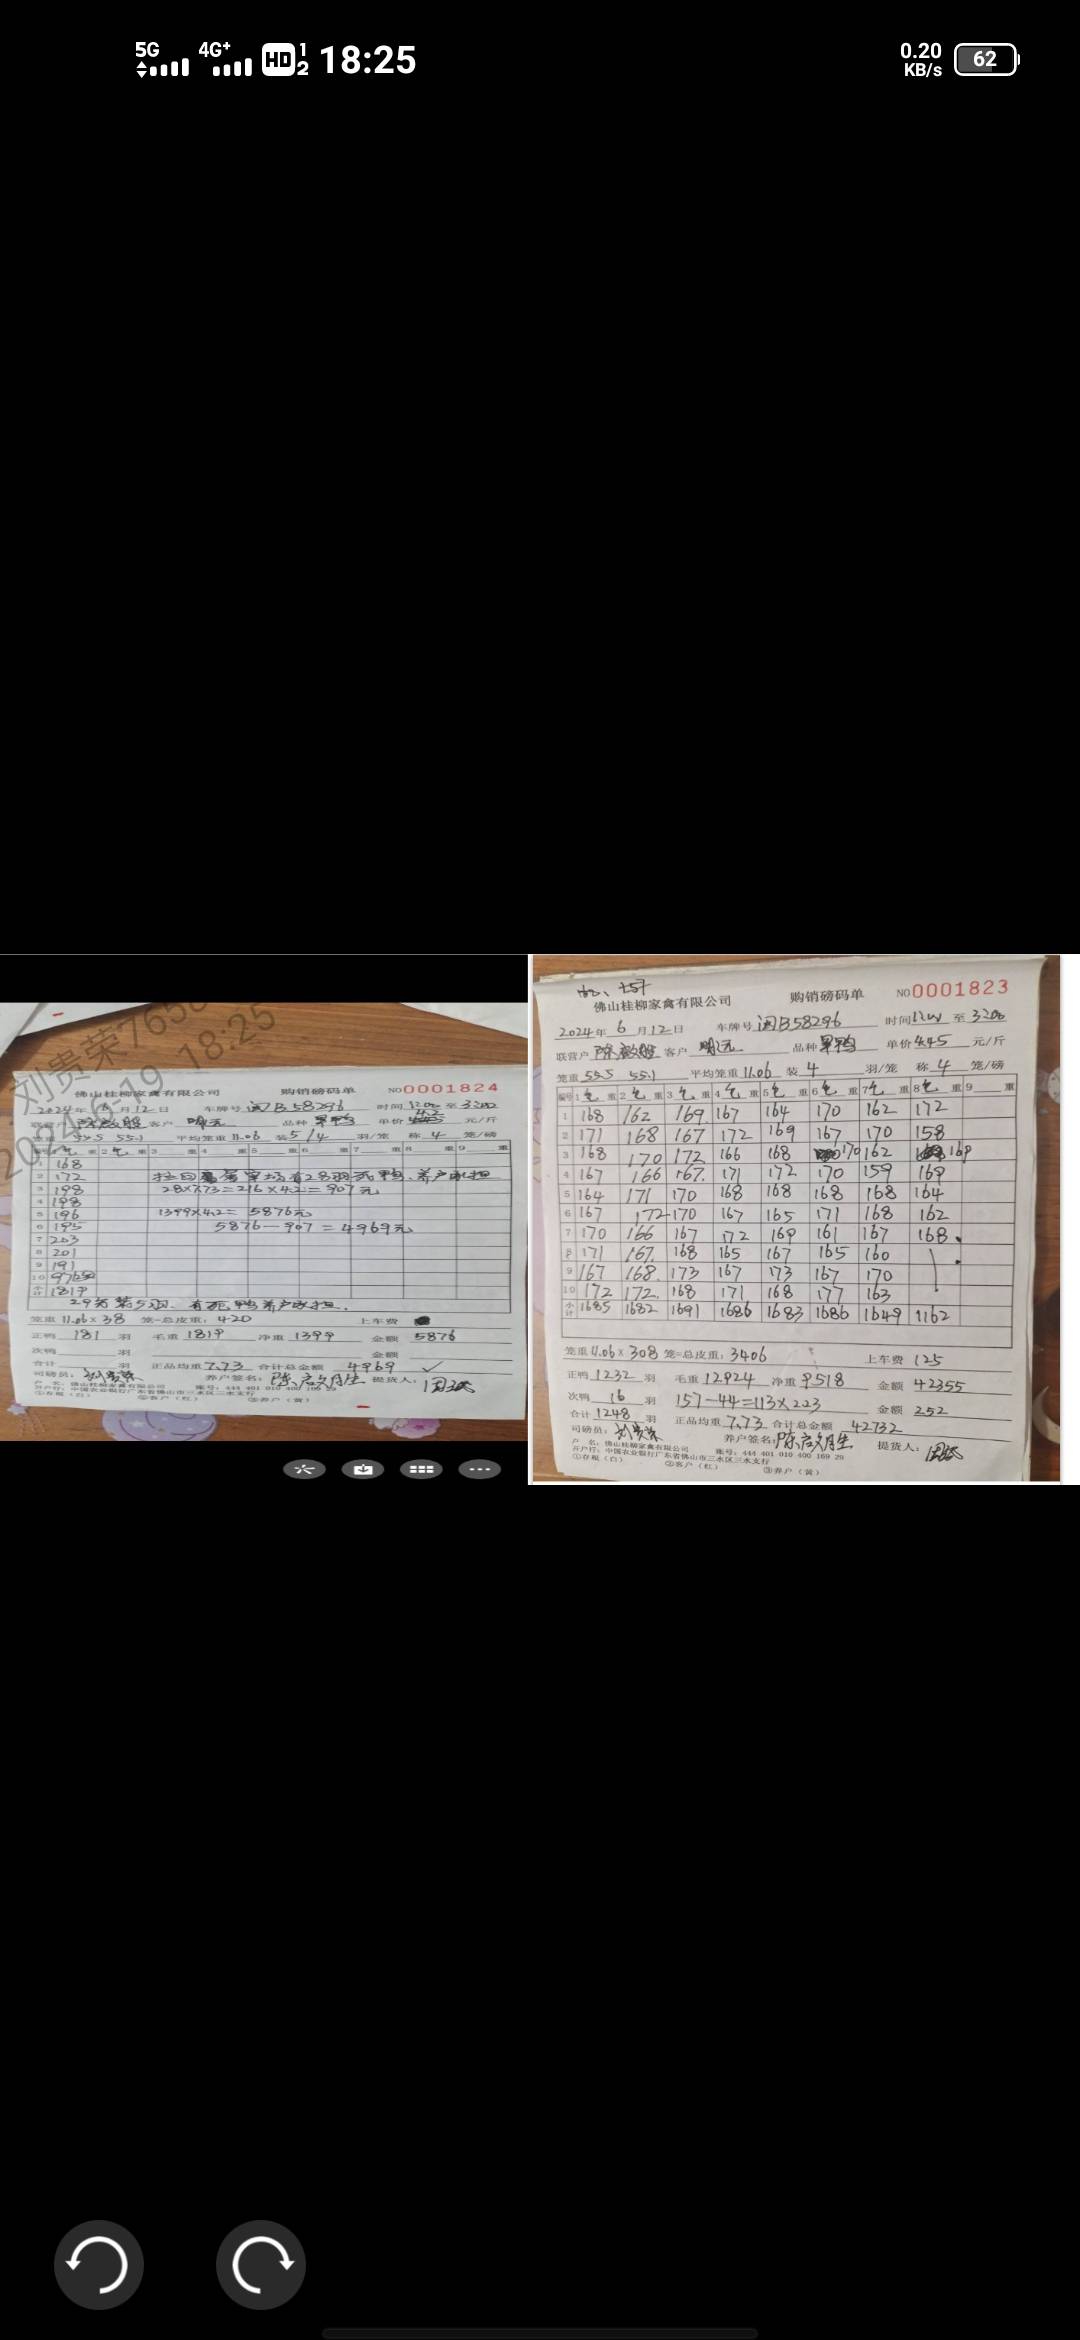 5G 4G+ HD 1 2 18:25
0.20 KB/s 62
刘贵荣765
2024-6-19 18:25
佛山桂柳家禽有限公司 购销磅码单 NO0001824
2024年6月12日 车牌号闽B58296 时间 至
联营户 客户 品种 单价 元/斤
笼重 55.5 55.1 平均笼重 11.06 装 5/4 羽/笼 称 4 笼/磅
1 168
2 172 28羽死鸭.养户承担
3 198 28×7.73=216×4.2=907元
4 198
5 196 1399×4.2=5876元
6 195 5876-907=4969元
7 203
8 201
9 191
10 97
小计 1819
养户承担.
笼重 11.06×38 笼=总皮重: 420 上车费
正鸭 181 羽 毛重 1819 净重 1399 金额 5876
次鸭 羽 金额
合计 羽 正品均重 7.73 合计总金额 4969
司磅员: 刘贵荣 养户签名: 提货人:
户 名: 佛山桂柳家禽有限公司 账号: 444 401 010 400 169 29
开户行: 中国农业银行广东省佛山市三水区三水支行
①存根(白) ②客户(红) ③养户(黄)
佛山桂柳家禽有限公司 购销磅码单 NO0001823
2024年6月12日 车牌号闽B58296 时间 至
联营户 客户 品种 单价 4.45 元/斤
笼重 55.5 55.1 平均笼重 11.06 装 4 羽/笼 称 4 笼/磅
编号 1 毛 重 2 毛 重 3 毛 重 4 毛 重 5 毛 重 6 毛 重 7 毛 重 8 毛 重 9 重
1 168 162 169 167 164 170 162 172
2 171 168 167 172 169 167 170 158
3 168 170 172 166 168 170 162 169
4 167 166 167 171 172 170 159 169
5 164 171 170 168 168 168 168 164
6 167 172 170 167 165 171 168 162
7 170 166 167 172 169 161 167 168
8 171 167 168 165 167 165 160
9 167 168 173 167 173 167 170
10 172 172 168 171 168 177 163
小计 1685 1682 1691 1686 1683 1686 1649 1162
笼重 11.06×308 笼=总皮重: 3406 上车费 125
正鸭 1232 羽 毛重 12924 净重 9518 金额 42355
次鸭 16 羽 157-44=113×2.23 金额 252
合计 1248 羽 正品均重 7.73 合计总金额 42732
司磅员: 刘贵荣 养户签名: 提货人:
户 名: 佛山桂柳家禽有限公司 账号: 444 401 010 400 169 29
开户行: 中国农业银行广东省佛山市三水区三水支行
①存根(白) ②客户(红) ③养户(黄)